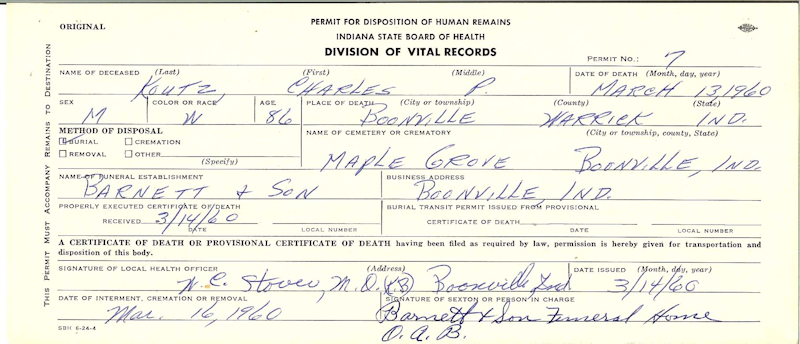 ORIGINAL
PERMIT FOR DISPOSITION OF HUMAN REMAINS
INDIANA STATE BOARD OF HEALTH
DIVISION OF VITAL RECORDS
PERMIT NO.: 7
NAME OF DECEASED (Last) (First) (Middle) DATE OF DEATH (Month, day, year)
KOUTZ, CHARLES P. MARCH 13, 1960
SEX COLOR OR RACE AGE PLACE OF DEATH (City or township) (County) (State)
M W 86 BOONVILLE WARRICK IND.
METHOD OF DISPOSAL NAME OF CEMETERY OR CREMATORY (City or township, county, State)
BURIAL CREMATION
REMOVAL OTHER
(Specify)
MAPLE GROVE BOONVILLE, IND.
NAME OF FUNERAL ESTABLISHMENT BUSINESS ADDRESS
BARNETT & SON BOONVILLE, IND.
PROPERLY EXECUTED CERTIFICATE OF DEATH BURIAL TRANSIT PERMIT ISSUED FROM PROVISIONAL
RECEIVED 3/14/60 CERTIFICATE OF DEATH
DATE LOCAL NUMBER DATE LOCAL NUMBER
A CERTIFICATE OF DEATH OR PROVISIONAL CERTIFICATE OF DEATH having been filed as required by law, permission is hereby given for transportation and
disposition of this body.
SIGNATURE OF LOCAL HEALTH OFFICER (Address) DATE ISSUED (Month, day, year)
W. C. Stover, M.D. Boonville Ind. 3/14/60
DATE OF INTERMENT, CREMATION OR REMOVAL SIGNATURE OF SEXTON OR PERSON IN CHARGE
Mar. 16, 1960 Barnett & Son Funeral Home
O.A.B.
SBH 6-24-4
THIS PERMIT MUST ACCOMPANY REMAINS TO DESTINATION